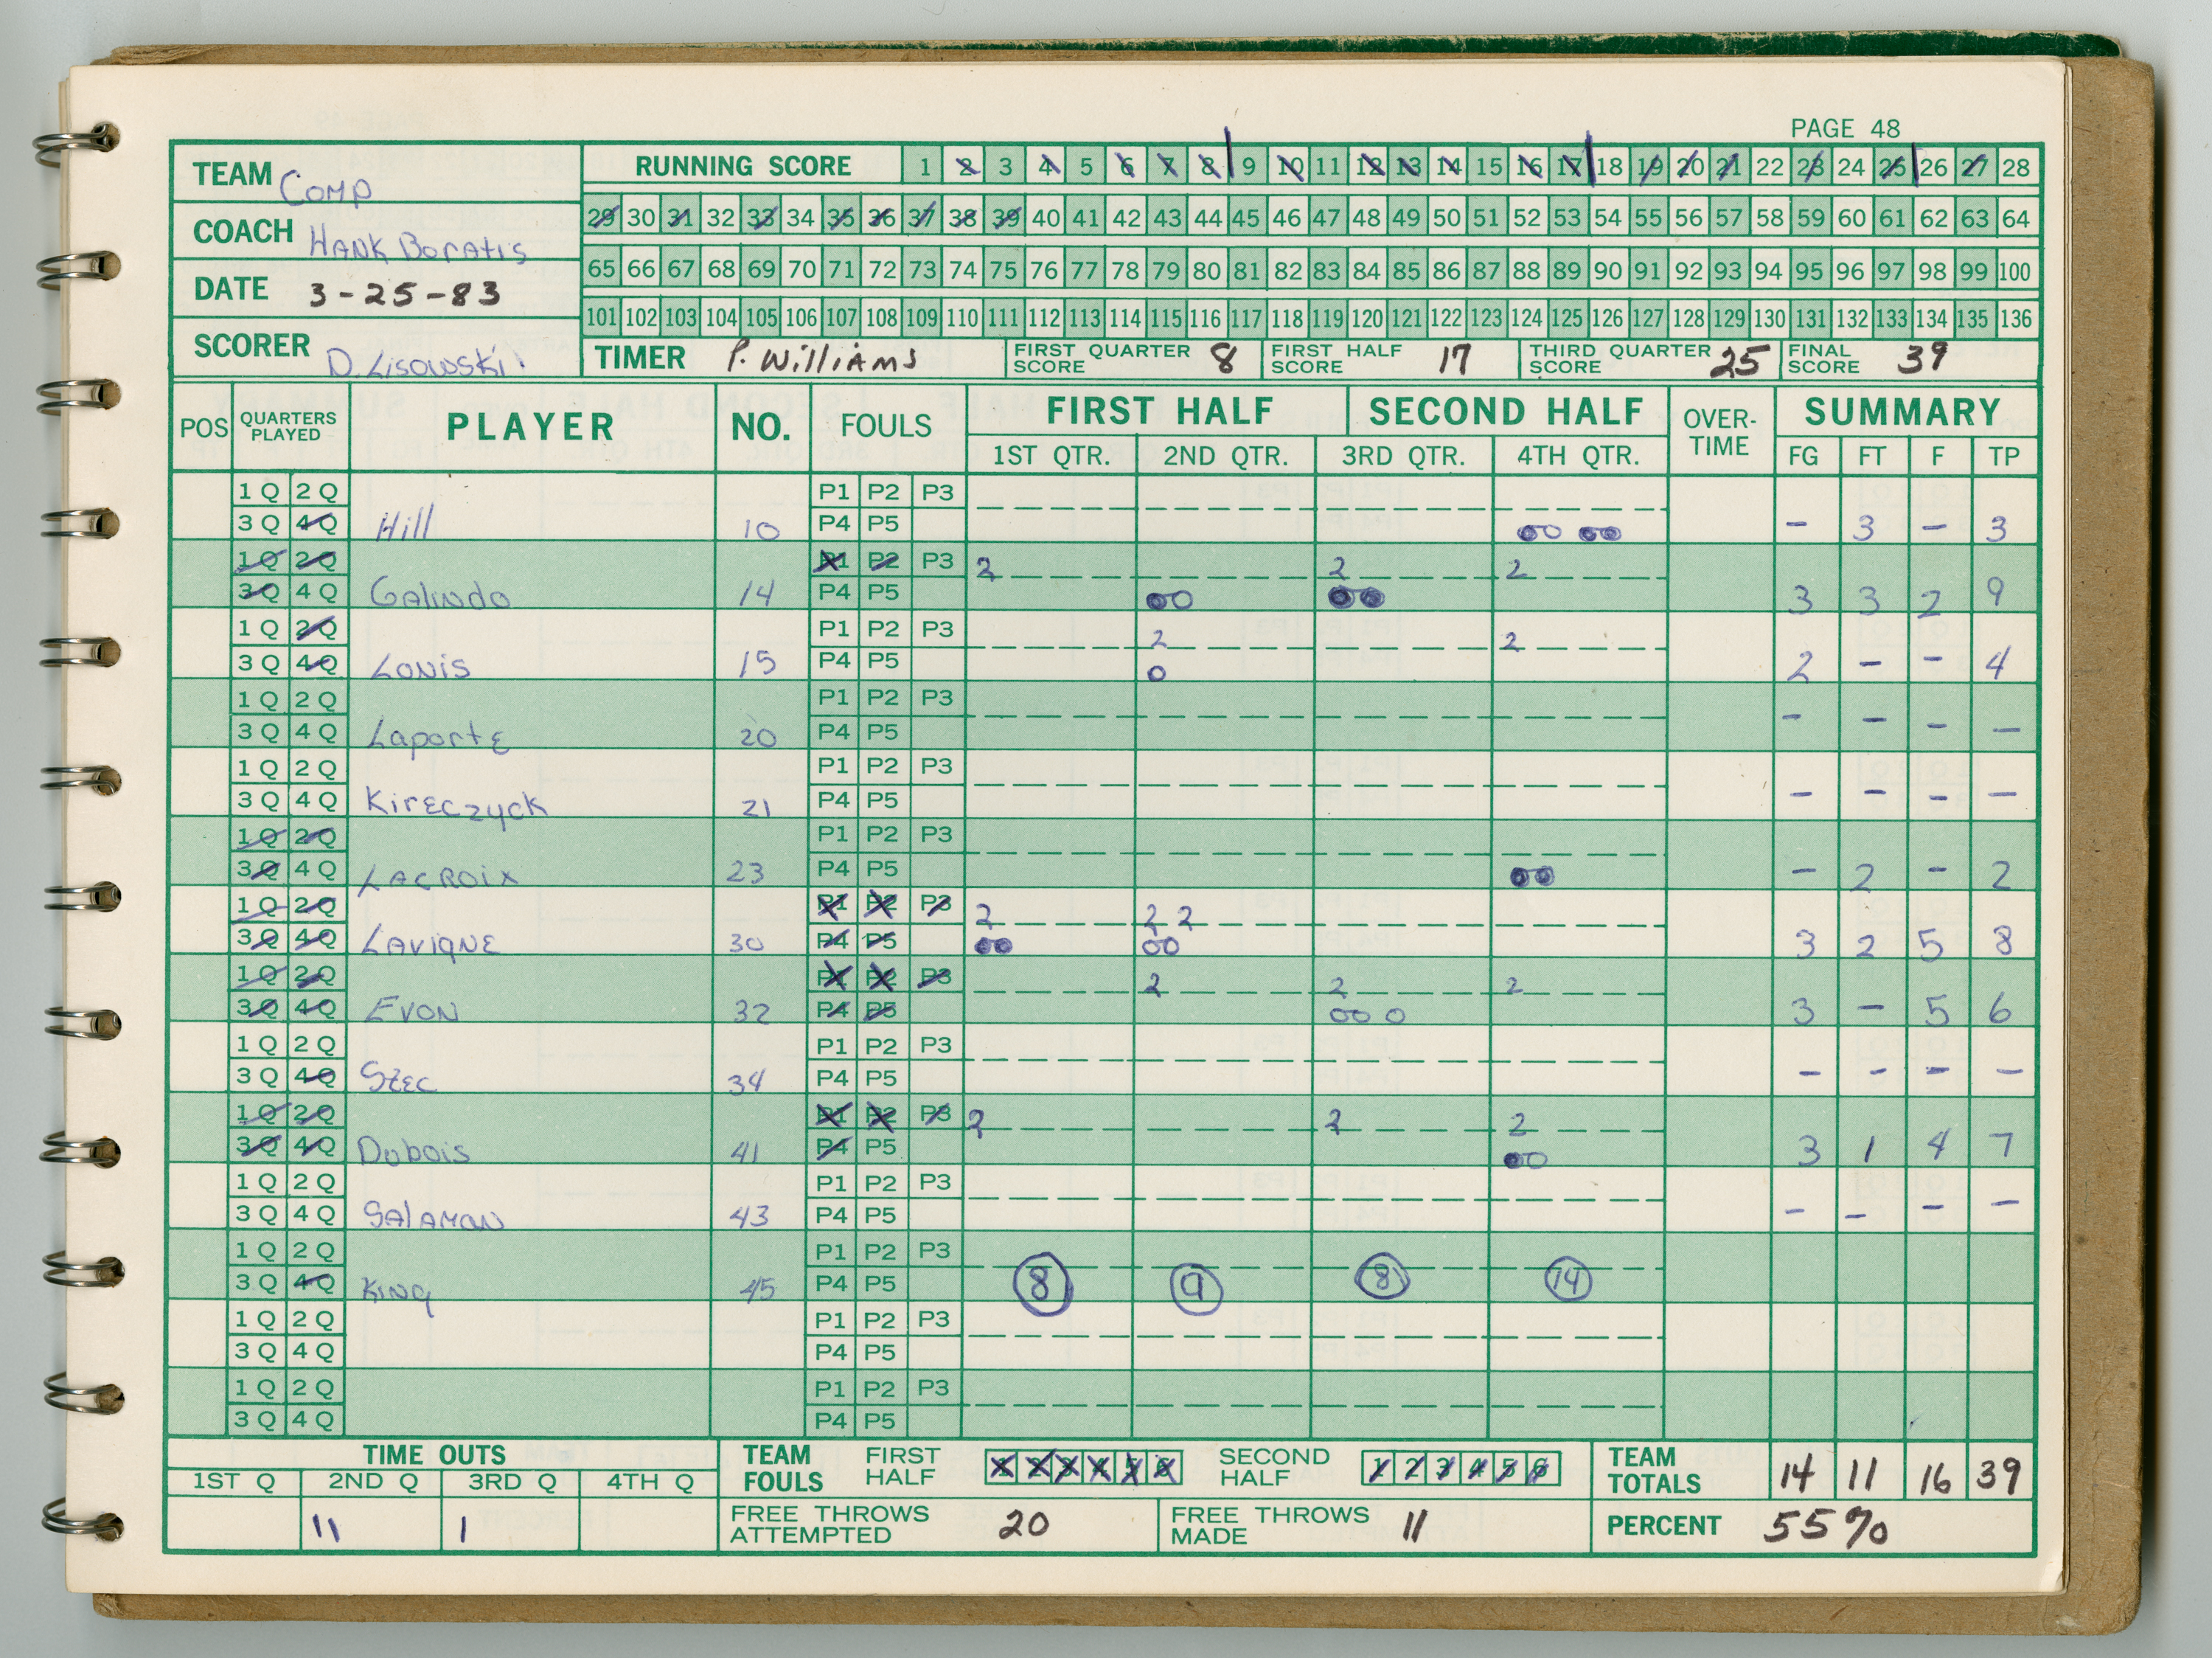 PAGE 48
TEAM Comp
RUNNING SCORE 1 2 3 4 5 6 7 8 9 10 11 12 13 14 15 16 17 18 19 20 21 22 23 24 25 26 27 28
COACH Hank Boratis
29 30 31 32 33 34 35 36 37 38 39 40 41 42 43 44 45 46 47 48 49 50 51 52 53 54 55 56 57 58 59 60 61 62 63 64
DATE 3-25-83
65 66 67 68 69 70 71 72 73 74 75 76 77 78 79 80 81 82 83 84 85 86 87 88 89 90 91 92 93 94 95 96 97 98 99 100
101 102 103 104 105 106 107 108 109 110 111 112 113 114 115 116 117 118 119 120 121 122 123 124 125 126 127 128 129 130 131 132 133 134 135 136
SCORER D. Lisowski
TIMER P. Williams FIRST QUARTER SCORE 8 FIRST HALF SCORE 17 THIRD QUARTER SCORE 25 FINAL SCORE 39
POS QUARTERS PLAYED PLAYER NO. FOULS FIRST HALF SECOND HALF OVER-TIME SUMMARY
1ST QTR. 2ND QTR. 3RD QTR. 4TH QTR. FG FT F TP
1 Q 2 Q P1 P2 P3
3 Q 4 Q Hill 10 P4 P5 - 3 - 3
1 Q 2 Q P1 P2 P3 2 2 2
3 Q 4 Q Galindo 14 P4 P5 3 3 2 9
1 Q 2 Q P1 P2 P3 2 2
3 Q 4 Q Lonis 15 P4 P5 2 - - 4
1 Q 2 Q P1 P2 P3
3 Q 4 Q Laporte 20 P4 P5 - - - -
1 Q 2 Q P1 P2 P3
3 Q 4 Q Kireczyck 21 P4 P5 - - - -
1 Q 2 Q P1 P2 P3
3 Q 4 Q Lacroix 23 P4 P5 - 2 - 2
1 Q 2 Q P1 P2 P3 2 2 2
3 Q 4 Q Lavigne 30 P4 P5 3 2 5 8
1 Q 2 Q P1 P2 P3 2 2 2
3 Q 4 Q Evon 32 P4 P5 3 - 5 6
1 Q 2 Q P1 P2 P3
3 Q 4 Q Stec 34 P4 P5 - - - -
1 Q 2 Q P1 P2 P3 2 2 2
3 Q 4 Q Dubois 41 P4 P5 3 1 4 7
1 Q 2 Q P1 P2 P3
3 Q 4 Q Salamon 43 P4 P5 - - - -
1 Q 2 Q P1 P2 P3
3 Q 4 Q King 45 P4 P5 8 9 8 14
1 Q 2 Q P1 P2 P3
3 Q 4 Q P4 P5
1 Q 2 Q P1 P2 P3
3 Q 4 Q P4 P5
TIME OUTS TEAM FOULS FIRST HALF 1 2 3 4 5 6 SECOND HALF 1 2 3 4 5 6 TEAM TOTALS 14 11 16 39
1ST Q 2ND Q 3RD Q 4TH Q
11 1 FREE THROWS ATTEMPTED 20 FREE THROWS MADE 11 PERCENT 55%